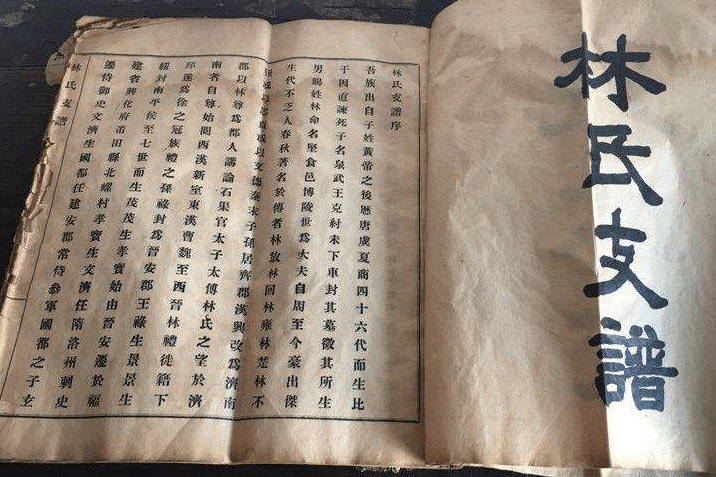 林氏支譜
林氏支譜序
吾族出自子姓黃帝之後歷唐虞夏商四十六代而生比
干因直諫死子名泉武王克紂未下車封其墓徵其所生
男賜姓林命名堅食邑博陵世爲大夫自周至今豪出傑
生代不乏人春秋著名於傳者林放林回林雍林楚林不
成以文德秦太子孫居齊郡漢興改爲濟南
郡以林尊爲郡人講論石渠官太子太傅林氏之望於濟
南者自尊始閱西漢新室東漢曹魏至西晉林禮徙籍下
邳遂爲徐之冠族禮之孫祿封爲晉安郡王祿生景景生
綏封南平侯至七世而生茂茂生孝寶始由晉安遷於福
建省興化府莆田縣北螺村孝寶生文濟任隋洛州刺史
遷侍御史文濟生國都任建安郡常侍參軍國都之子玄
林氏支譜